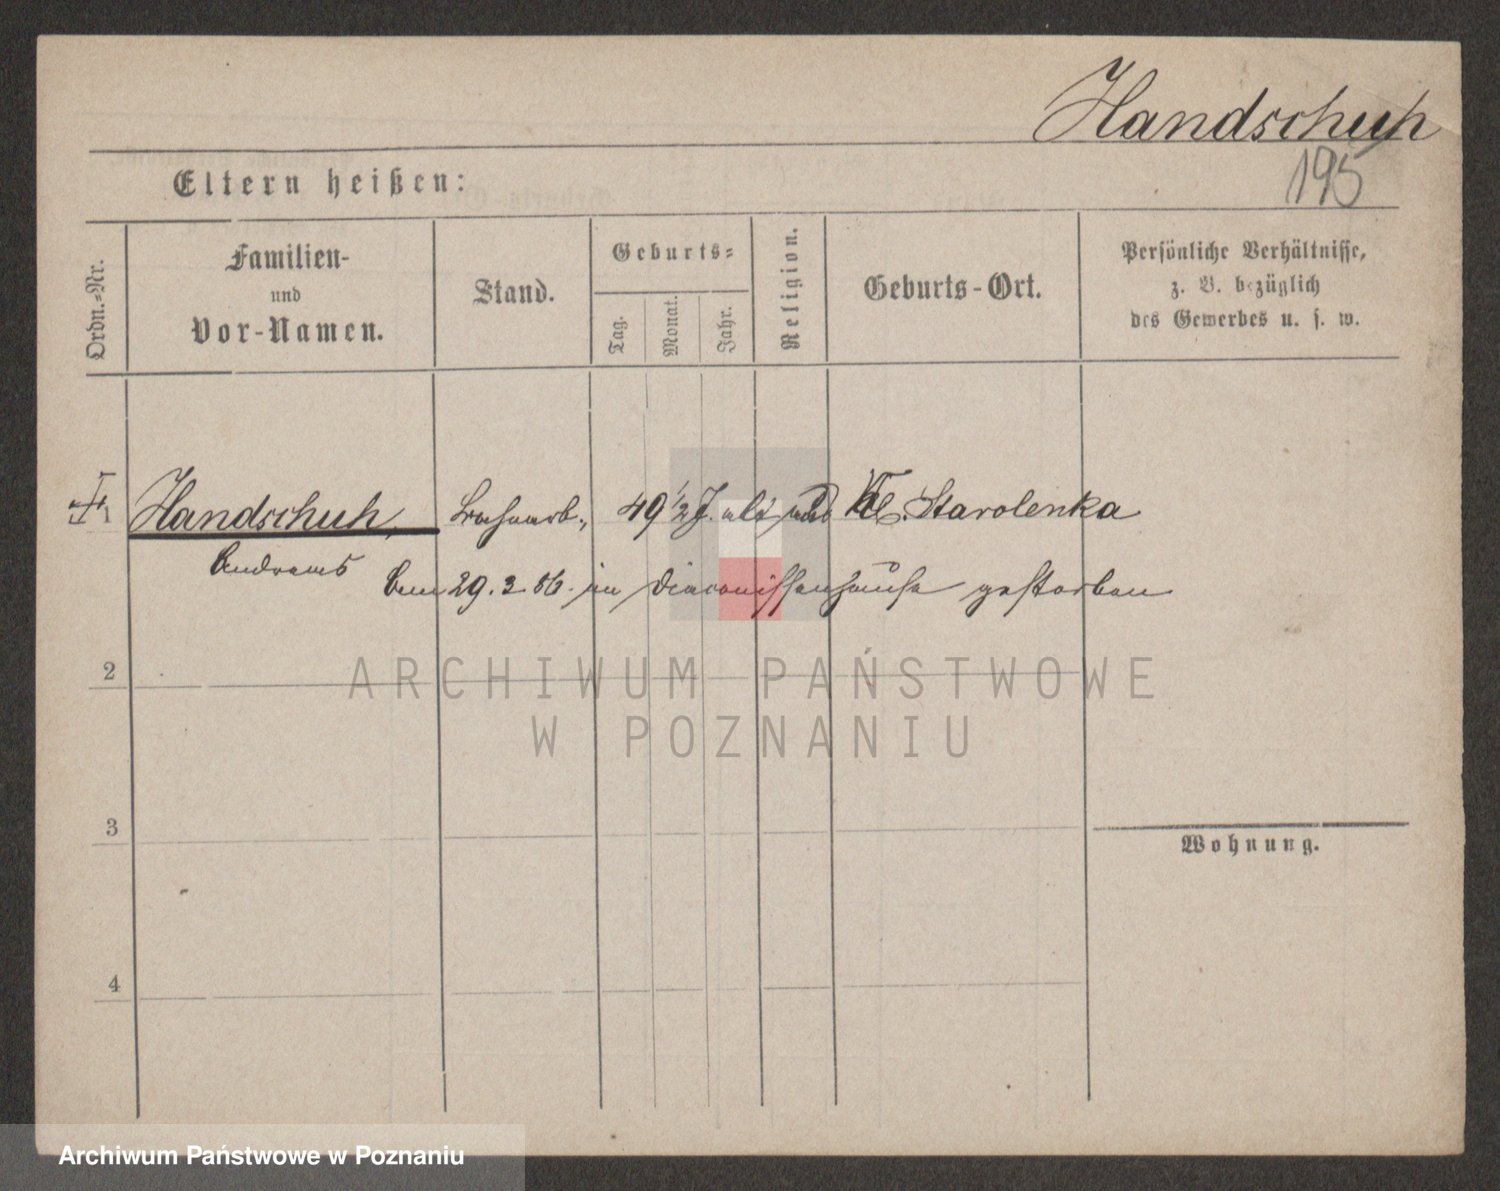 Handschuh
195
Eltern heißen:
Ordn.=Nr.
Familien-
und
Vor-Namen.
Stand.
Geburts=
Tag.
Monat.
Jahr.
Religion.
Geburts-Ort.
Persönliche Verhältnisse,
z. B. bezüglich
des Gewerbes u. s. w.
1 Handschuh, 49 1/2 J. alt Kl. Starolenka
Andreas
29. 3 86. im Diaconissenhause gestorben
2
3
Wohnung.
4
ARCHIWUM PAŃSTWOWE
W POZNANIU
Archiwum Państwowe w Poznaniu